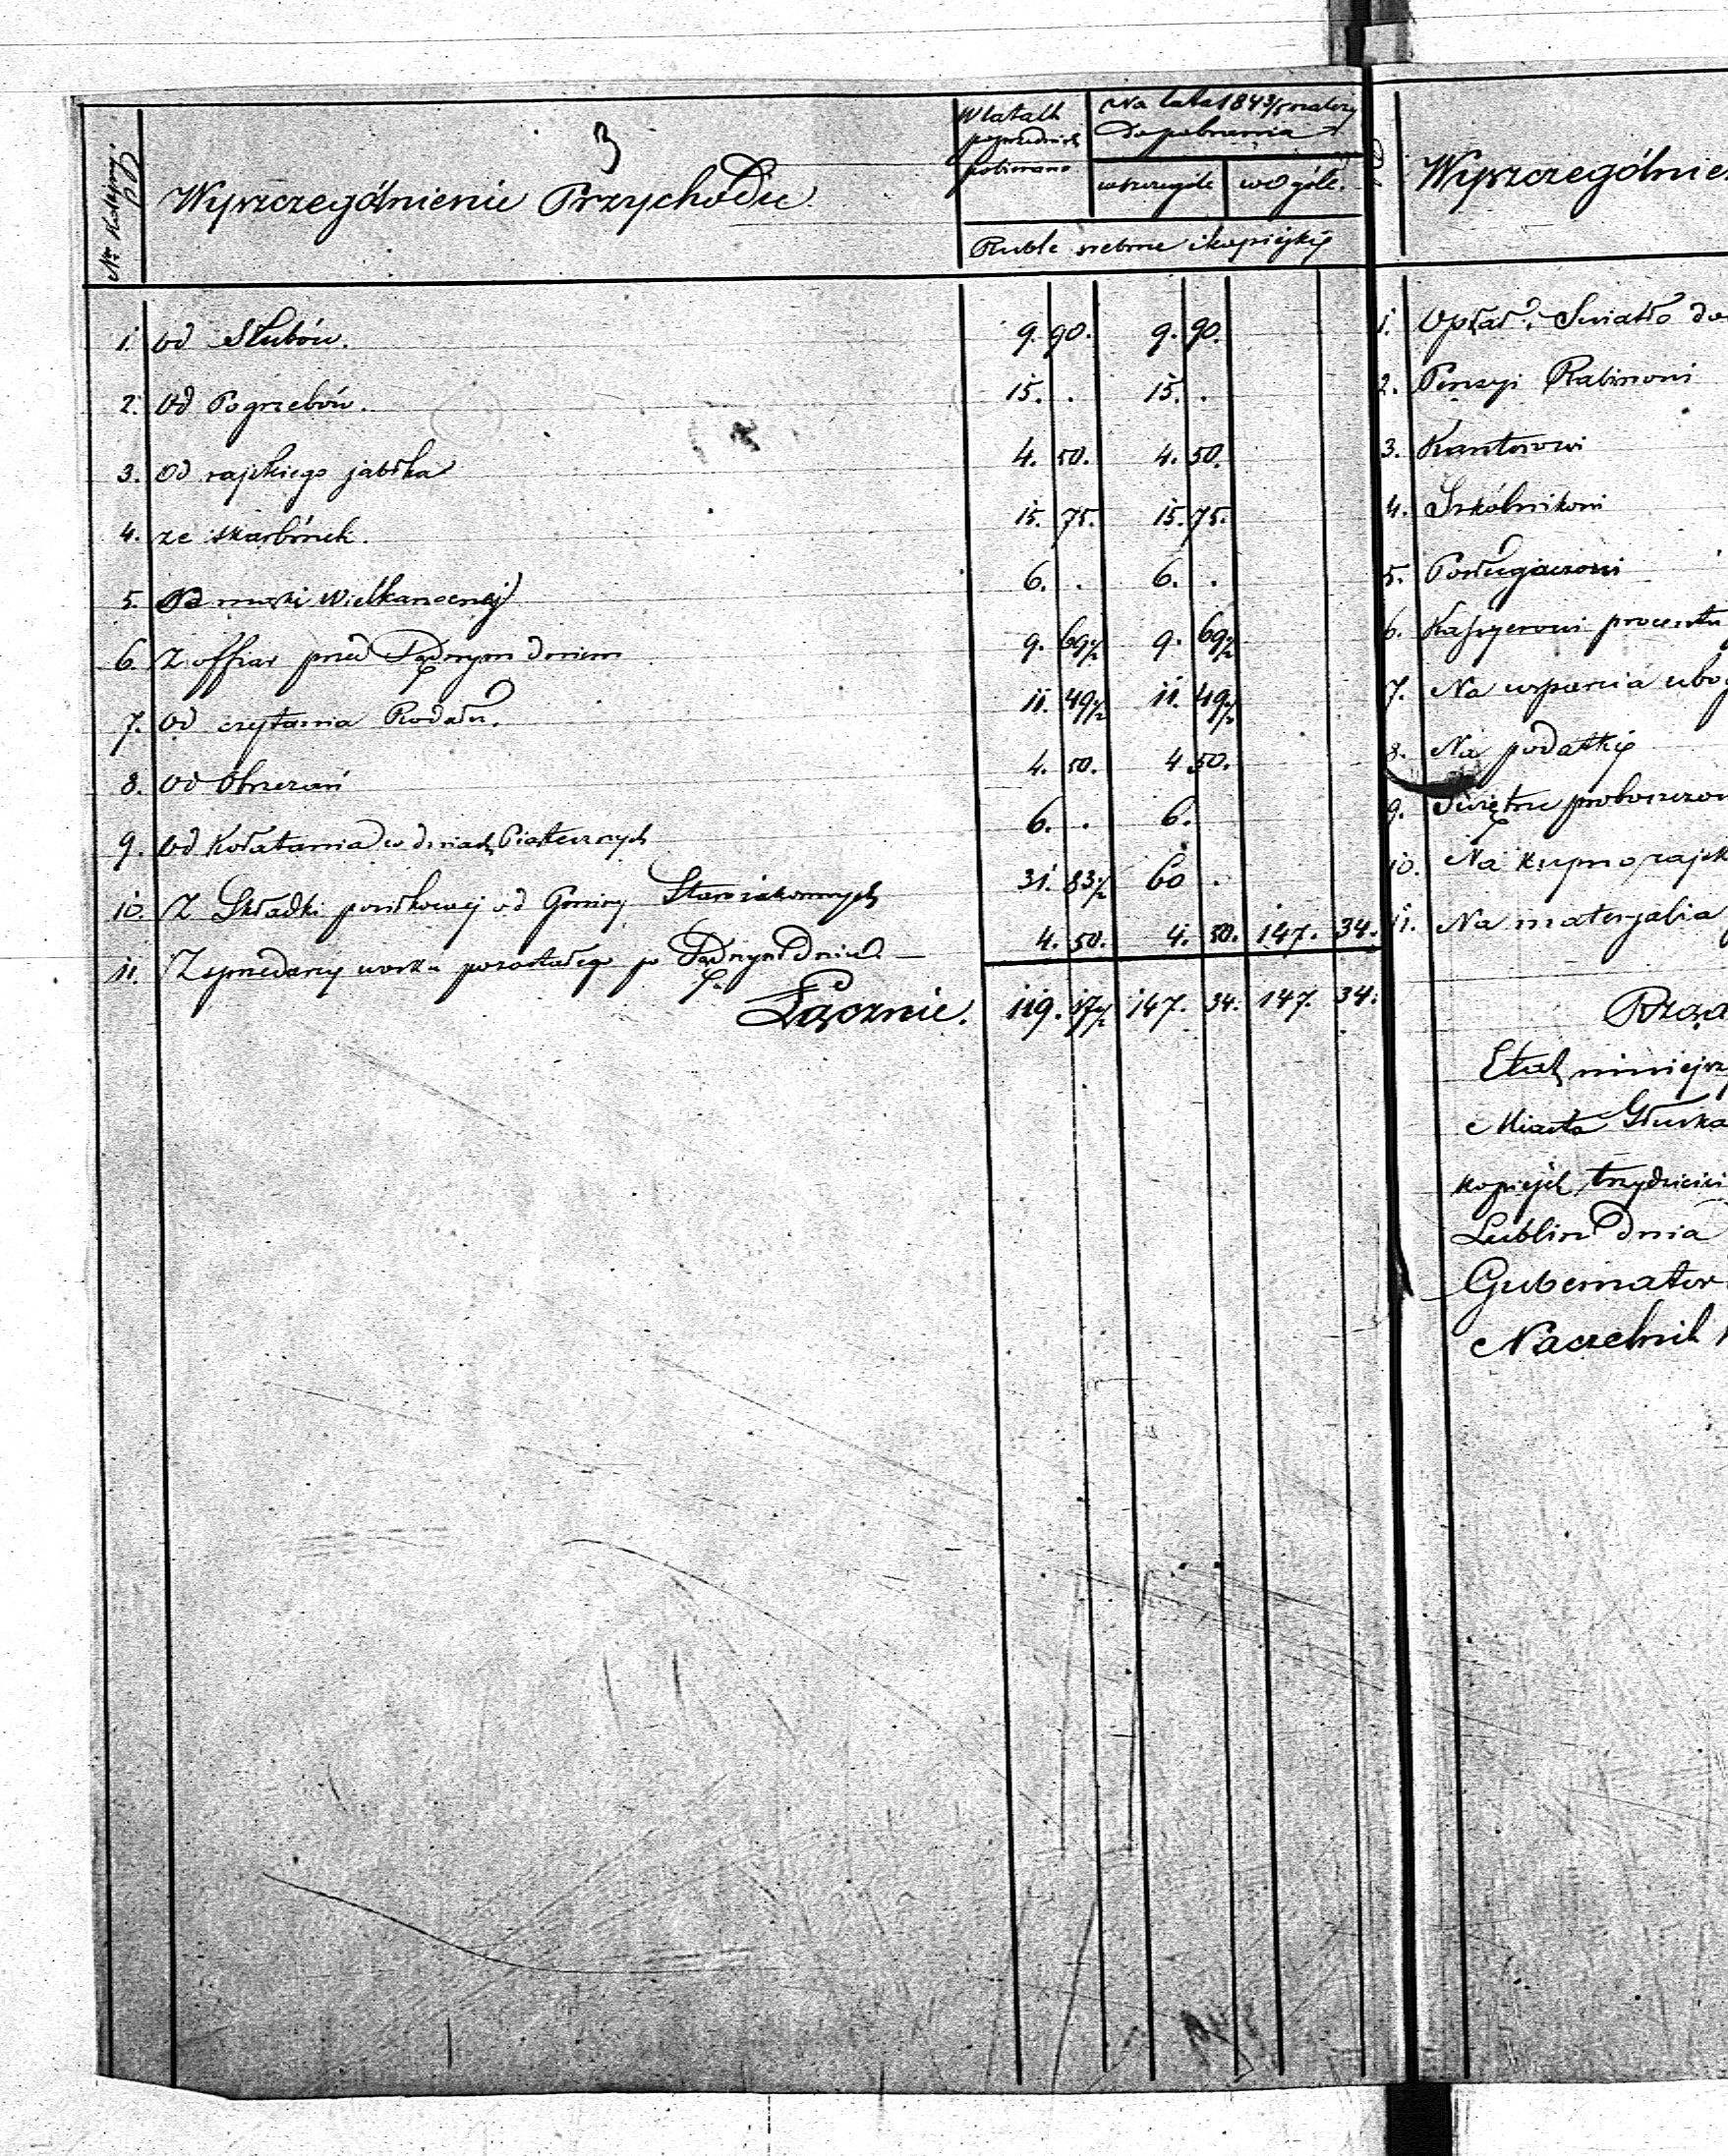 3
Wyszczególnienie Przychodu
W latach
poprzednich
pobierano
Na lata 1843/5 należy
do pobrania
w szczególe w ogóle.
Ruble srebrne i kopiejki
1. Od Slubów. 9. 90. 9. 90.
2. Od Pogrzebów. 15. . 15. .
3. Od rajskiego jabłka 4. 50. 4. 50.
4. ze skarbonek. 15. 75. 15. 75.
5. Od mąki Wielkanocnej 6. . 6. .
6. Z offiar przed Sądnym dniem 9. 69½ 9. 69½
7. Od czytania Rodału. 11. 49½ 11. 49½
8. Od Obrzezań 4. 50. 4. 50.
9. Od Kołatania w dniach Piątecznych 6. . 6.
10. Z Składki posiłkowej od Gminy Starozakonnych 31. 83½ 60 .
11. Z sprzedarzy wosku pozostałego po Sądnym Dniu. — 4. 50. 4. 50. 147. 34.
Łącznie. 119. 17½ 147. 34. 147. 34.
1. Opłat. Swiatło do
2. Pensyi Rabinowi
3. Kantorowi
4. Szkólnikowi
5. Posługaczowi
6. Kassyerowi procentu
7. Na wsparcia ubog
8. Na podatki
9. Swiętne proboszczow
10. Na kupno rajsk
11. Na materyalia
Rząd
Etat niniejszy
Miasta Głuska
kopiejek trzydzieści
Lublin dnia
Gubernator
Naczelnik